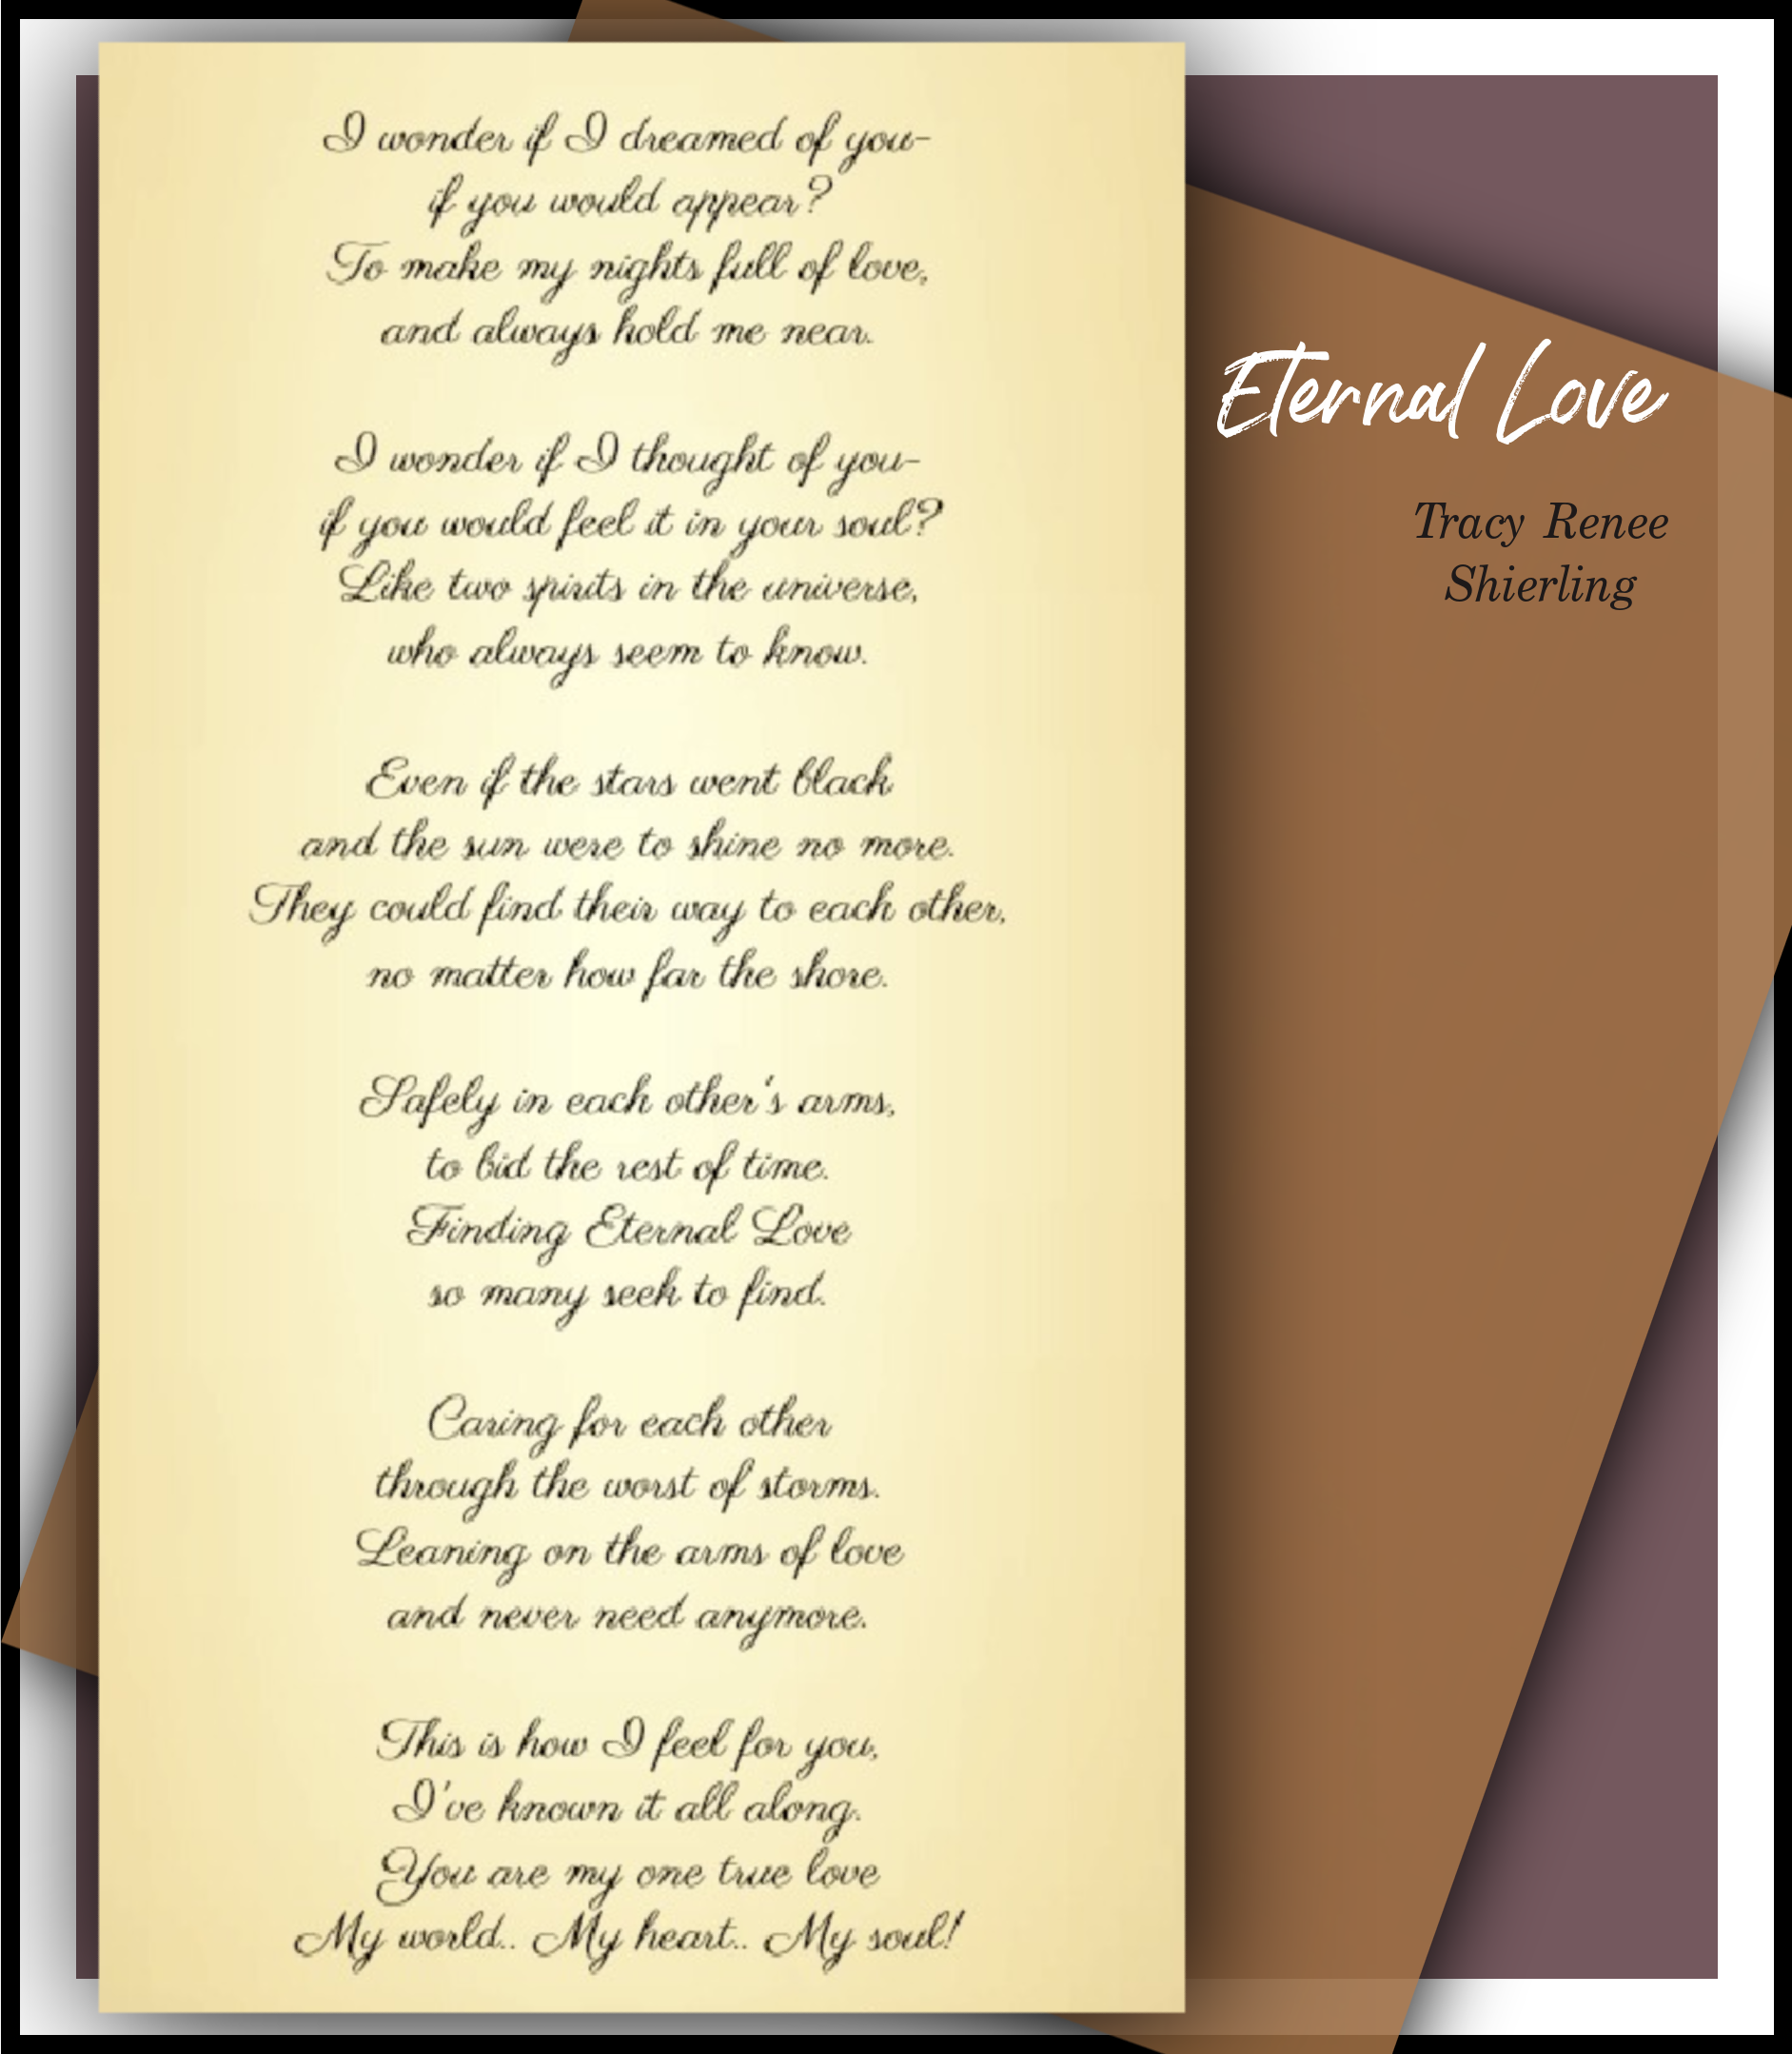 I wonder if I dreamed of you-
if you would appear?
To make my nights full of love,
and always hold me near.
I wonder if I thought of you-
if you would feel it in your soul?
Like two spirits in the universe,
who always seem to know.
Even if the stars went black
and the sun were to shine no more.
They could find their way to each other,
no matter how far the shore.
Safely in each other's arms,
to bid the rest of time.
Finding Eternal Love
so many seek to find.
Caring for each other
through the worst of storms.
Leaning on the arms of love
and never need anymore.
This is how I feel for you,
I've known it all along.
You are my one true love
My world.. My heart.. My soul!
Eternal Love
Tracy Renee
Shierling